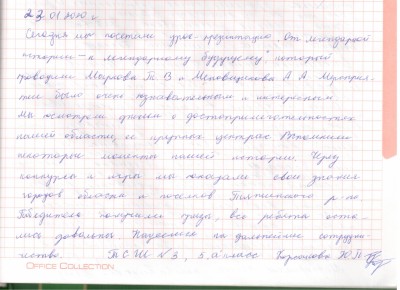 23.01.2020 г.
Сегодня мы посетили урок-презентацию „От легендарной
истории – к легендарному будущему" который
проводили Т. В и А. А. Мероприя-
тие было очень познавательным и интересным
мы посмотрели о достопримечательностях
нашей области, ее центрах Вспомнили
некоторые моменты нашей истории. Через
конкурсы и игры мы показали свои знания
городов области и поселков р-на.
Победители получили призы, все ребята оста-
лись довольны. Надеемся на дальнейшее сотрудни-
чество. БСШ №3, 5 „а" класс Ю.П.
OFFICE COLLECTION